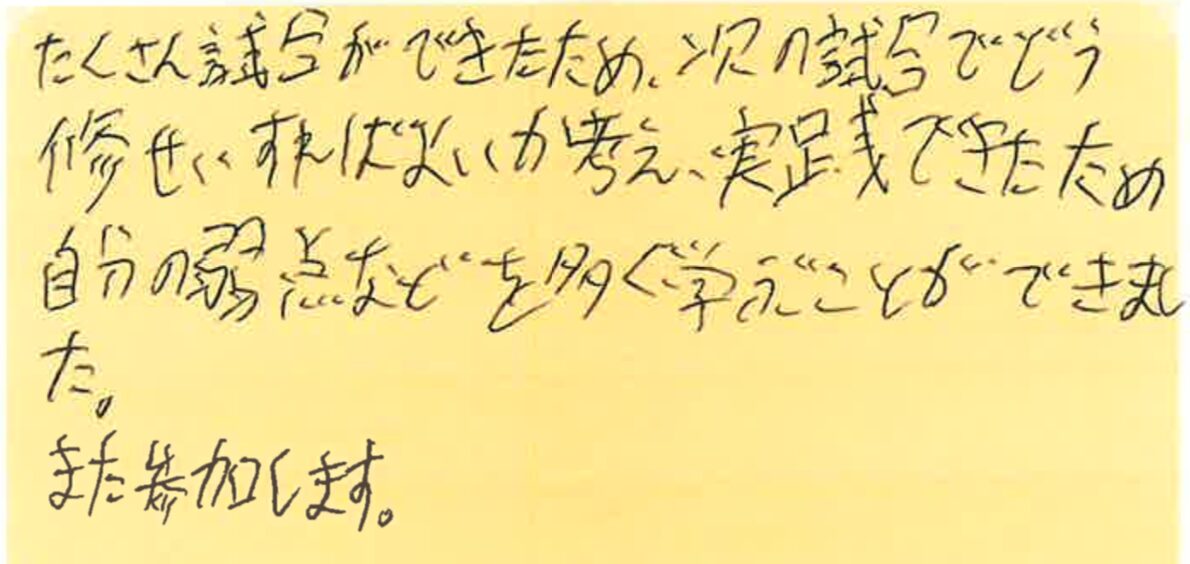 たくさん試合ができたため、次の試合でどう
修せいすればよいか考え、実践できたため
自分の弱点などを多く学ぶことができまし
た。
また参加します。